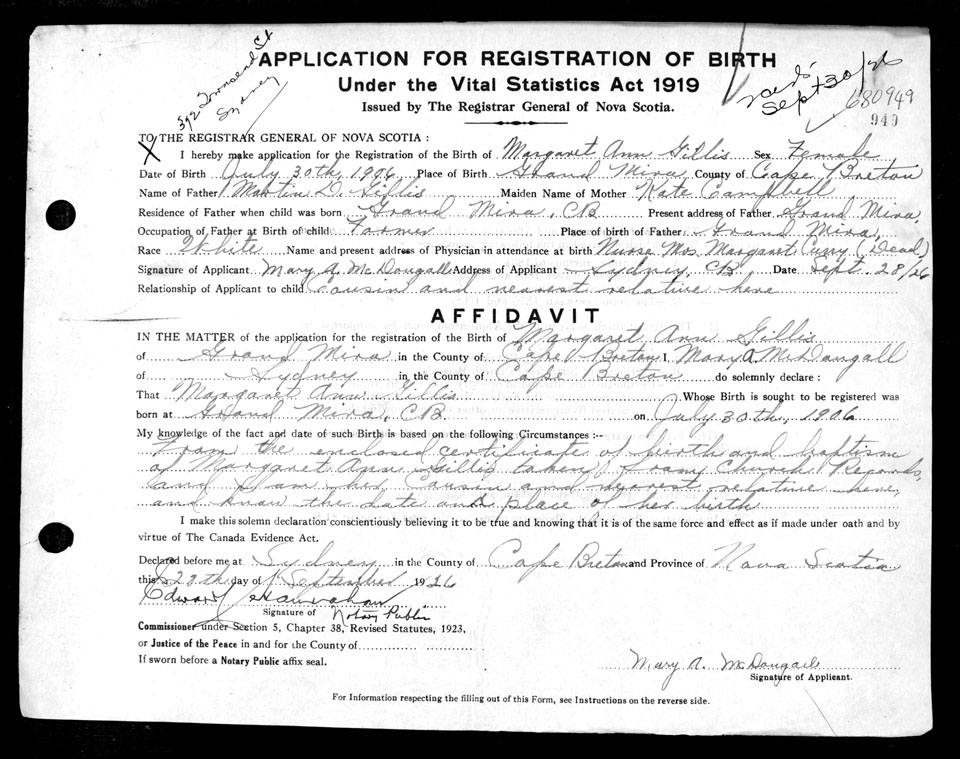 392 Townsend St
Sydney
APPLICATION FOR REGISTRATION OF BIRTH
Under the Vital Statistics Act 1919
Issued by The Registrar General of Nova Scotia.
Rec'd
Sept 30/26
680949
949
TO THE REGISTRAR GENERAL OF NOVA SCOTIA :
X I hereby make application for the Registration of the Birth of Margaret Ann Gillis Sex Female
Date of Birth July 30th, 1906 Place of Birth Grand Mira County of Cape Breton
Name of Father Martin D. Gillis Maiden Name of Mother Kate Campbell
Residence of Father when child was born Grand Mira, CB Present address of Father Grand Mira,
Occupation of Father at Birth of child Farmer Place of birth of Father Grand Mira,
Race White Name and present address of Physician in attendance at birth Nurse Mrs. Margaret Curry (Dead)
Signature of Applicant Mary A. McDougall Address of Applicant Sydney, CB. Date Sept. 28/26
Relationship of Applicant to child Cousin and nearest relative here
AFFIDAVIT
IN THE MATTER of the application for the registration of the Birth of Margaret Ann Gillis
of Grand Mira in the County of Cape Breton I, Mary A. McDougall
of Sydney in the County of Cape Breton do solemnly declare :
That Margaret Ann Gillis Whose Birth is sought to be registered was
born at Grand Mira, CB on July 30th, 1906
My knowledge of the fact and date of such Birth is based on the following Circumstances :--
From the enclosed certificate of birth and baptism
of Margaret Ann Gillis taken from Church Records,
and I am her Cousin and nearest relative here,
and know the date and place of her birth
I make this solemn declaration conscientiously believing it to be true and knowing that it is of the same force and effect as if made under oath and by
virtue of The Canada Evidence Act.
Declared before me at Sydney in the County of Cape Breton and Province of Nova Scotia
this 28th day of September 1926
Edward
Signature of Notary Public
Commissioner under Section 5, Chapter 38, Revised Statutes, 1923,
or Justice of the Peace in and for the County of
If sworn before a Notary Public affix seal.
Mary A. McDougall
Signature of Applicant.
For Information respecting the filling out of this Form, see Instructions on the reverse side.